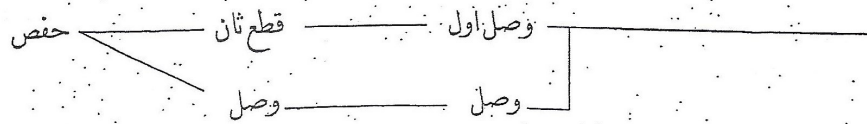 وصل اول قطع ثان حفص
وصل وصل